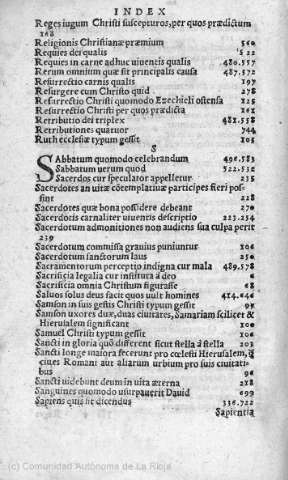 INDEX
Reges iugum Christi suscepturos, per quos prædictum
268
Religionis Christianæ præmium 560
Requies dei qualis 522
Requies in carne adhuc uiuentis qualis 480.557
Rerum omnium quæ sit principalis causa 487.572
Resurrectio carnis qualis 197
Resurgere cum Christo quid 278
Resurrectio Christi quomodo Ezechieli ostensa 325
Resurrectio Christi per quos prædicta 261
Retributio dei triplex 482.558
Retributiones quatuor 744
Ruth ecclesiæ typum gessit 205
S
SAbbatum quomodo celebrandum 490.583
Sabbatum uerum quod 522.532
Sacerdos cur speculator appelletur 235
Sacerdotes an uitæ cõtemplatiuæ participes fieri pos
sint 228
Sacerdotes quæ bona possidere debeant 270
Sacerdotis carnaliter uiuentis descriptio 223.254
Sacerdotum admonitiones non audiens sua culpa perit
239
Sacerdotum commissa grauius puniuntur 206
Sacerdotum sanctorum laus 250
Sacramentorum perceptio indigna cur mala 489.578
Sacrificia legalia cur instituta à deo 6
Sacrificia omnia Christum figurasse 68
Saluos solus deus facit quos uult homines 414.646
Samson in suis gestis Christi typum gessit 99
Samson uxores duæ, duas ciuitates, Samariam scilicet &
Hierusalem significant 200
Samuel Christi typum gessit 206
Sancti in gloria quõ different sicut stella à stella 203
Sancti longe maiora fecerunt pro cœlesti Hierusalem, q̃
ciues Romani aut aliarum urbium pro suis ciuitati-
bus 90
Sancti uidebunt deum in uita æterna 218
Sanguines quomodo usurpauerit Dauid 699
Sapiens quis sit dicendus 336.722
Sapientia
(c) Comunidad Autónoma de La Rioja